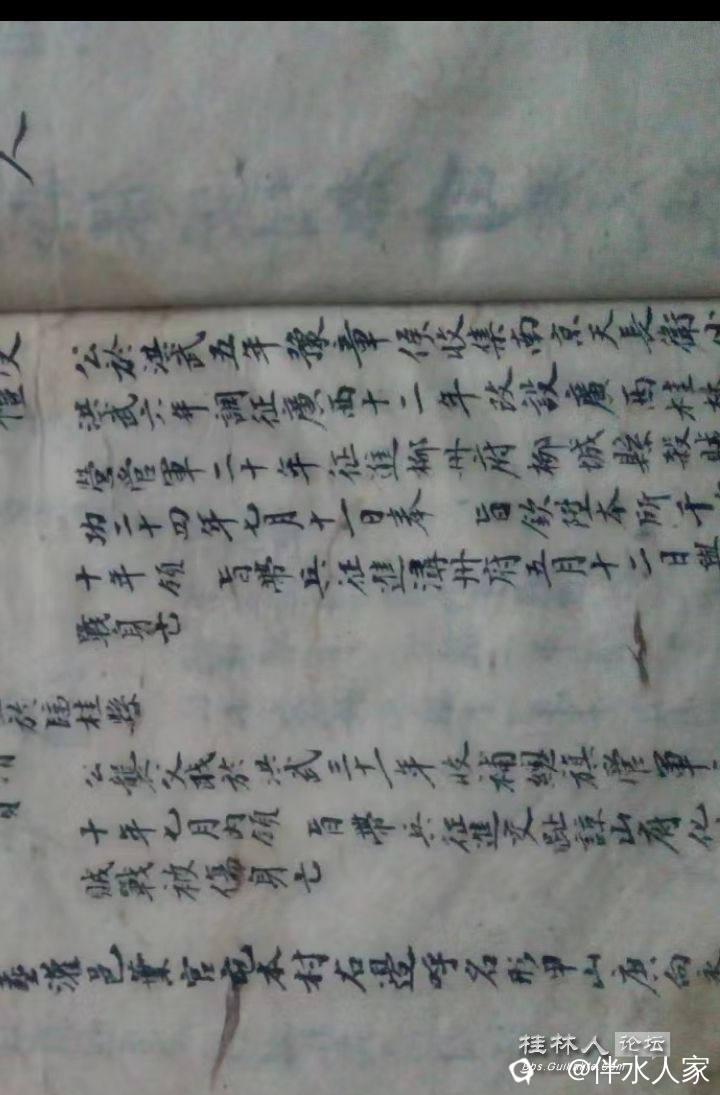 人
公於洪武五年豫章侯收集南京天長衛小
洪武六年調征廣西十二年改設廣西桂林
營管軍二十年征進柳州府柳城縣殺賊
功二十四年七月十一日奉 旨欽陞本所千
十年領 旨帶兵征進潯州府五月十二日與
戰身亡
於臨桂縣
公襲父職於洪武三十一年收補總旗管軍
十年七月內領 旨帶兵征進交趾諒山府化
賊戰被傷身亡
灌邑黃官屯本村右邊呼名形甲山庚向
桂林人论坛
bbs.Guilinlife.com
@伴水人家